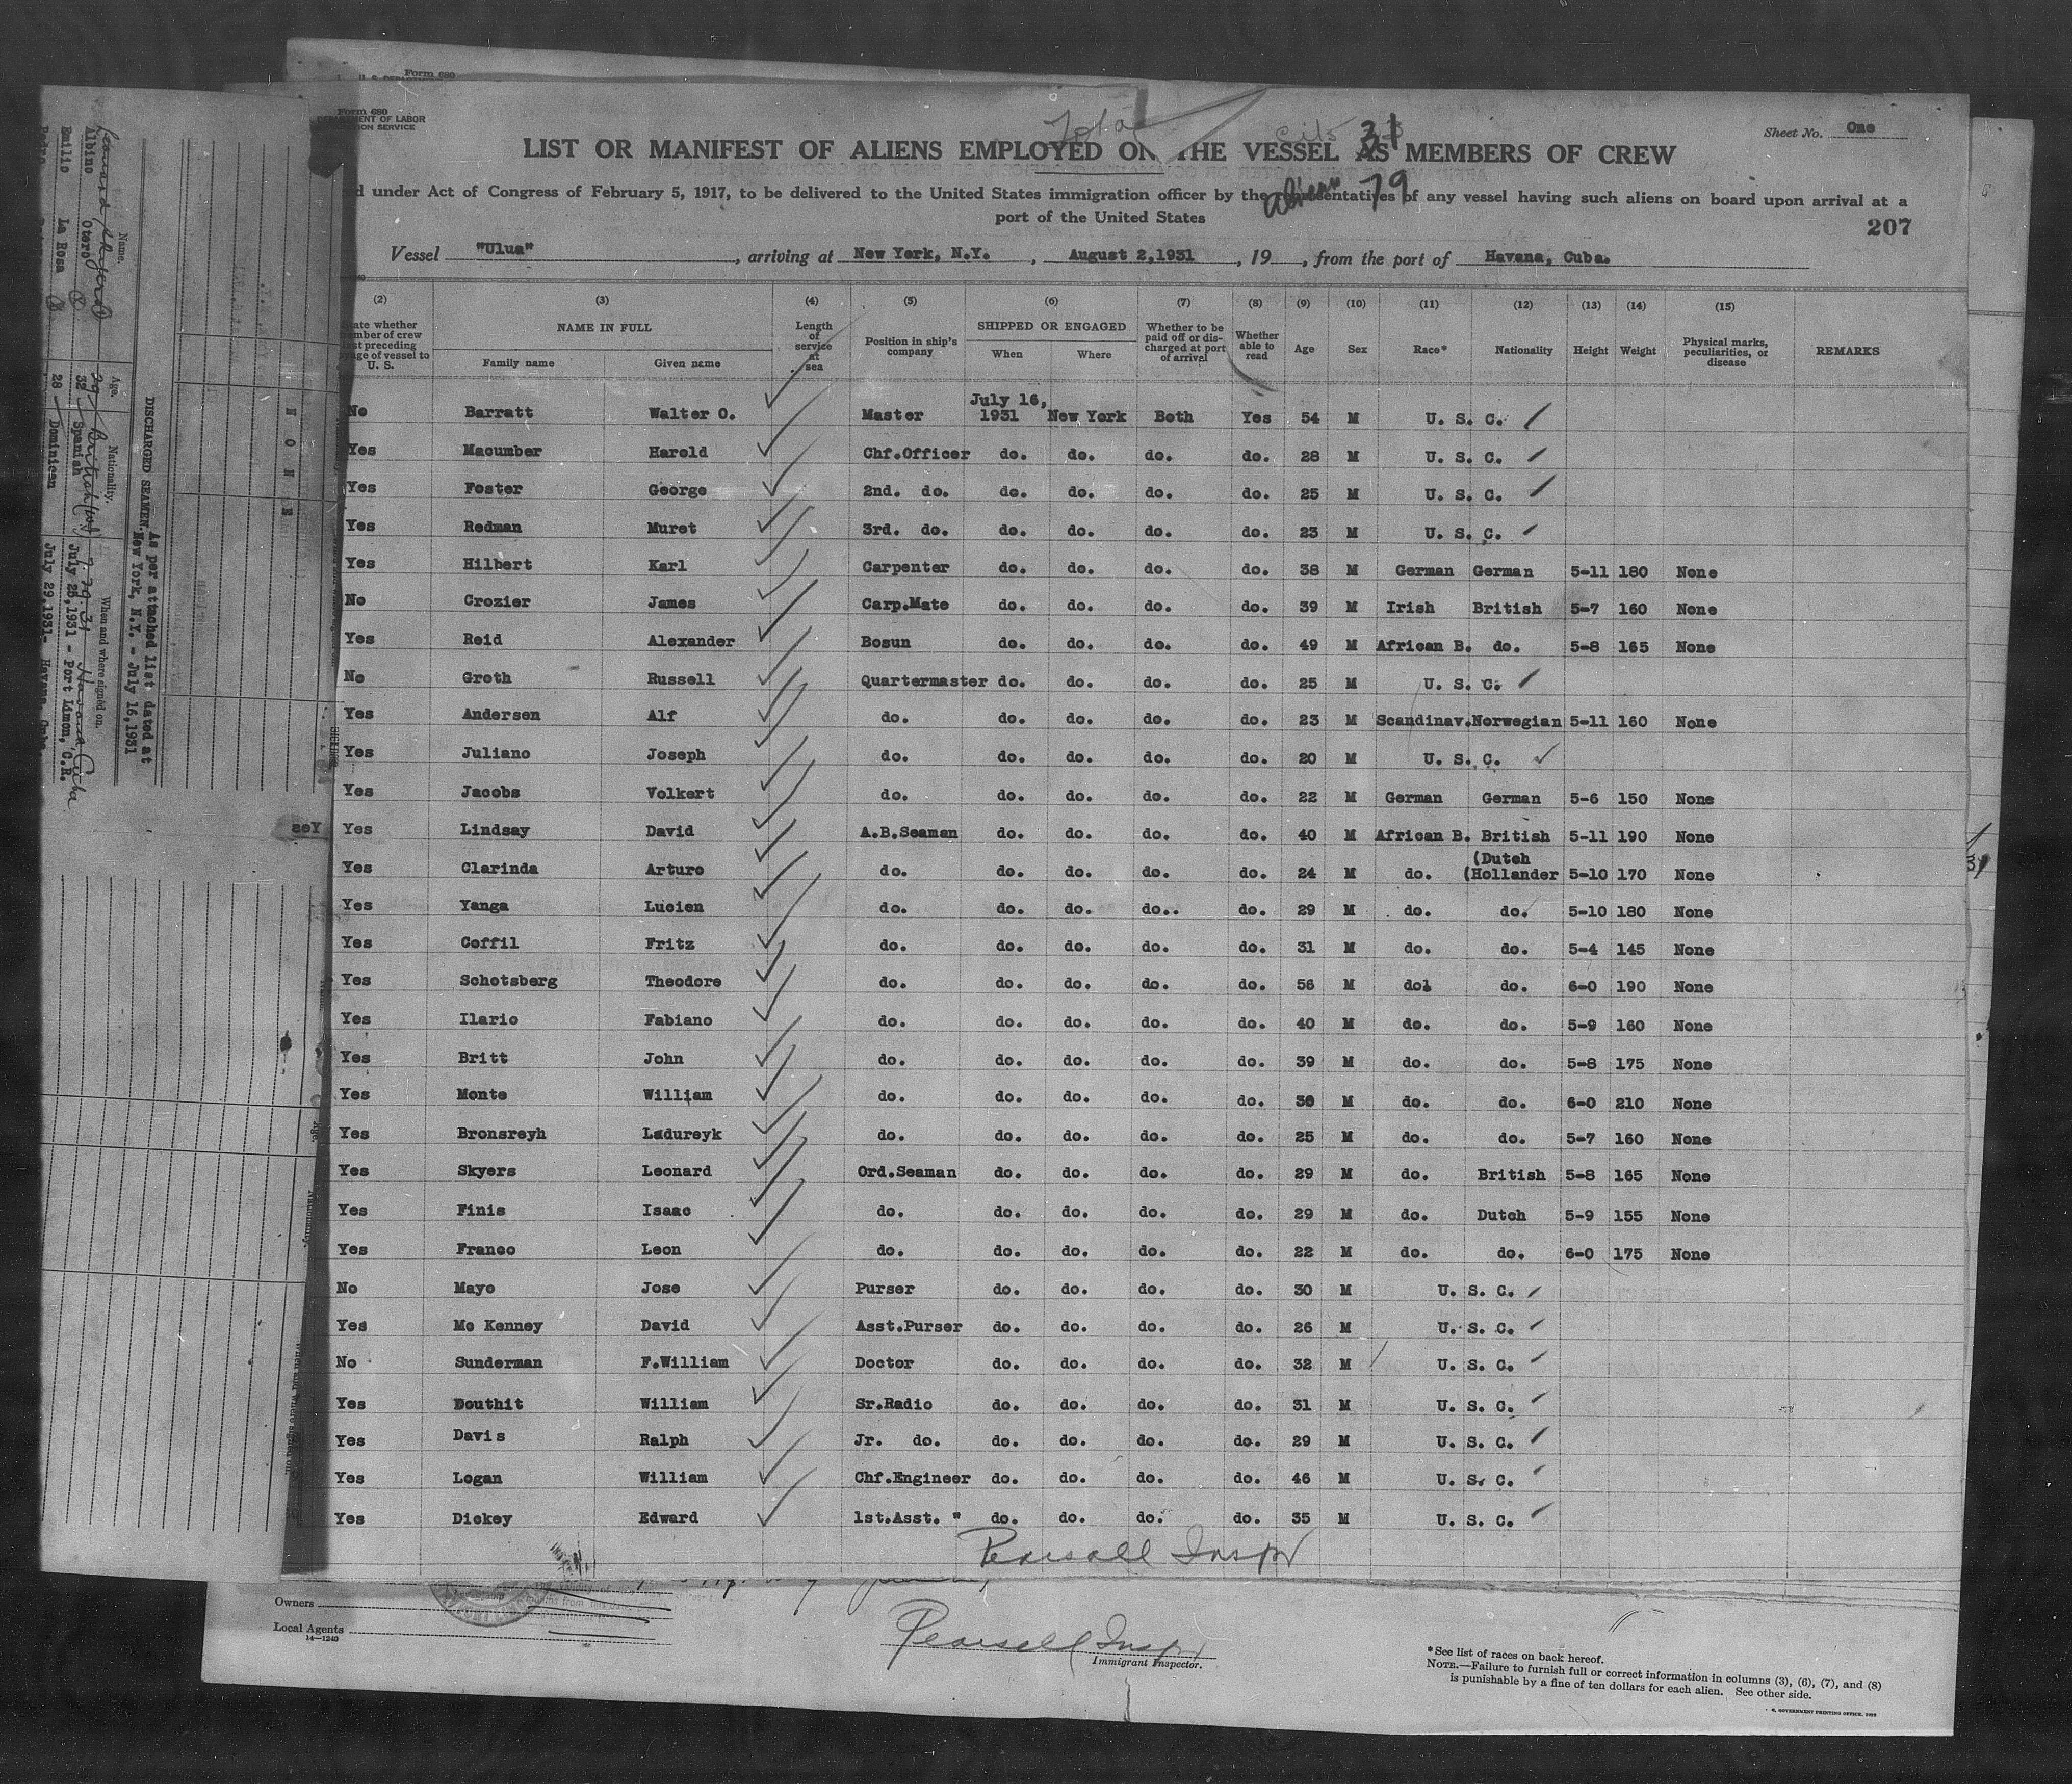 Form 680
Form 680
DEPARTMENT OF LABOR
Total
Cits 31
Sheet No. One
LIST OR MANIFEST OF ALIENS EMPLOYED ON THE VESSEL AS MEMBERS OF CREW
aliens 79
under Act of Congress of February 5, 1917, to be delivered to the United States immigration officer by the representatives of any vessel having such aliens on board upon arrival at a
port of the United States
207
Vessel "Ulua" , arriving at New York, N.Y. , August 2,1931 , 19 , from the port of Havana, Cuba.
(2) (3) (4) (5) (6) (7) (8) (9) (10) (11) (12) (13) (14) (15)
NAME IN FULL Family name Given name Length of service at sea Position in ship's company SHIPPED OR ENGAGED When Where Whether to be paid off or discharged at port of arrival Whether able to read Age Sex Race* Nationality Height Weight Physical marks, peculiarities, or disease REMARKS
No Barratt Walter O. Master July 16, 1931 New York Both Yes 54 M U. S. C.
Yes Macumber Harold Chf.Officer do. do. do. do. 28 M U. S. C.
Yes Foster George 2nd. do. do. do. do. do. 25 M U. S. C.
Yes Redman Muret 3rd. do. do. do. do. do. 23 M U. S. C.
Yes Hilbert Karl Carpenter do. do. do. do. 38 M German German 5-11 180 None
No Crozier James Carp.Mate do. do. do. do. 39 M Irish British 5-7 160 None
Yes Reid Alexander Bosun do. do. do. do. 49 M African B. do. 5-8 165 None
No Groth Russell Quartermaster do. do. do. do. 25 M U. S. C.
Yes Andersen Alf do. do. do. do. do. 23 M Scandinav. Norwegian 5-11 160 None
Yes Juliano Joseph do. do. do. do. do. 20 M U. S. C.
Yes Jacobs Volkert do. do. do. do. do. 22 M German German 5-6 150 None
Yes Lindsay David A.B.Seaman do. do. do. do. 40 M African B. British 5-11 190 None
Yes Clarinda Arturo do. do. do. do. do. 24 M do. (Dutch (Hollander 5-10 170 None
Yes Yanga Lucien do. do. do. do.. do. 29 M do. do. 5-10 180 None
Yes Coffil Fritz do. do. do. do. do. 31 M do. do. 5-4 145 None
Yes Schotsberg Theodore do. do. do. do. do. 56 M dol do. 6-0 190 None
Yes Ilario Fabiano do. do. do. do. do. 40 M do. do. 5-9 160 None
Yes Britt John do. do. do. do. do. 39 M do. do. 5-8 175 None
Yes Monte William do. do. do. do. do. 38 M do. do. 6-0 210 None
Yes Bronsreyh Ladureyk do. do. do. do. do. 25 M do. do. 5-7 160 None
Yes Skyers Leonard Ord.Seaman do. do. do. do. 29 M do. British 5-8 165 None
Yes Finis Isaac do. do. do. do. do. 29 M do. Dutch 5-9 155 None
Yes Franco Leon do. do. do. do. do. 22 M do. do. 6-0 175 None
No Mayo Jose Purser do. do. do. do. 30 M U. S. C.
Yes Mc Kenney David Asst.Purser do. do. do. do. 26 M U. S. C.
No Sunderman F.William Doctor do. do. do. do. 32 M U. S. C.
Yes Douthit William Sr.Radio do. do. do. do. 31 M U. S. C.
Yes Davis Ralph Jr. do. do. do. do. do. 29 M U. S. C.
Yes Logan William Chf.Engineer do. do. do. do. 46 M U. S. C.
Yes Dickey Edward 1st.Asst. " do. do. do. do. 35 M U. S. C.
Pearsall Inspr
Owners
Local Agents
14—1240
Pearsall Inspr
Immigrant Inspector.
*See list of races on back hereof.
NOTE.—Failure to furnish full or correct information in columns (3), (6), (7), and (8)
is punishable by a fine of ten dollars for each alien. See other side.
NONE
DISCHARGED SEAMEN. As per attached list dated at
New York, N.Y. - July 16,1931
Name. Age. Nationality. When and where signed on.
Leonard Skyers 29 British 7 29 31 Havana Cuba
Albino Otero 32 Spanish July 25,1931 - Port Limon, C.R.
Emilio La Rosa 28 Dominican July 29,1931- Havana, Cuba.
Yes